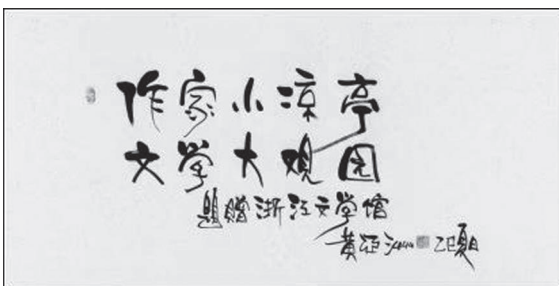 作家小凉亭
文学大观园
题赠浙江文学馆
黄亚洲 乙巳夏日